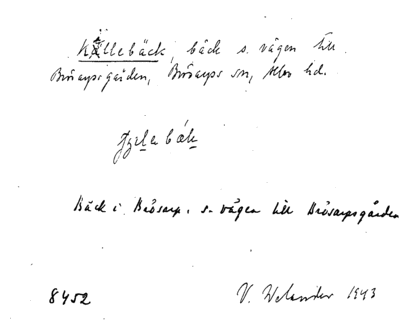 Källebäck, bäck s. vägen till
Brösarpsgården, Brösarps sn, Albo hd.
Bäck i Brösarp, s. vägen till Brösarpsgården
8452 V. Welander 1943